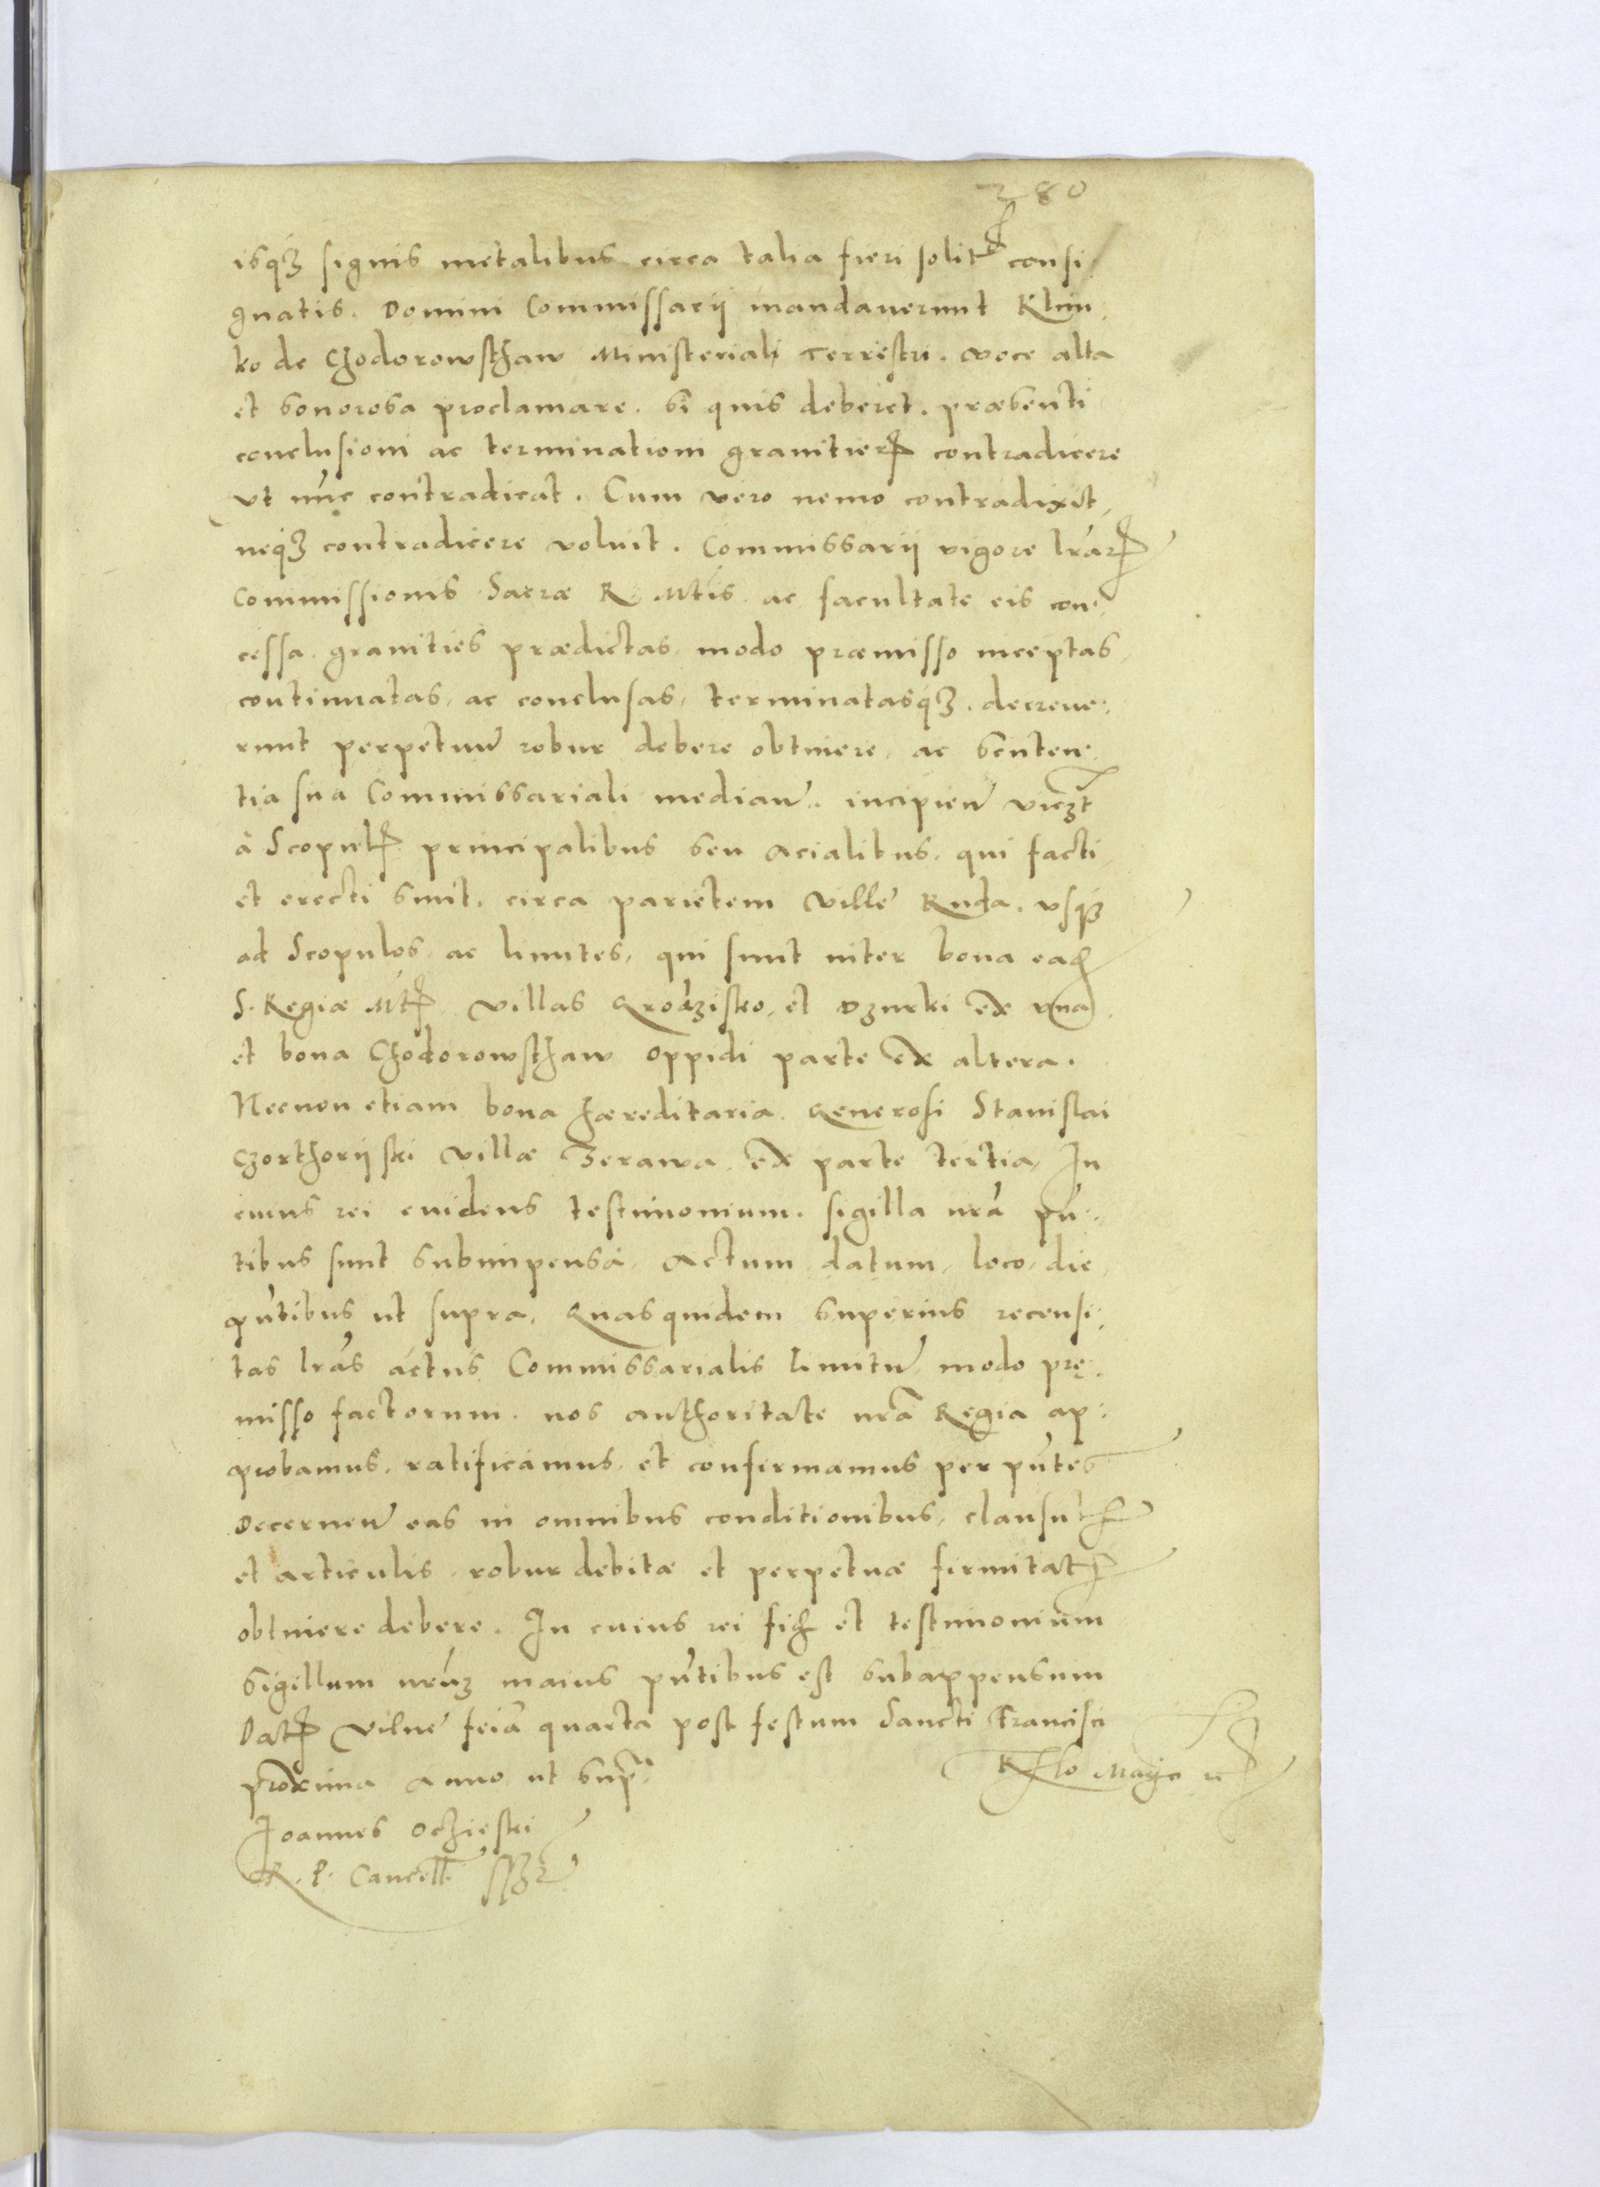 380
isq3 signis metalibus circa talia fieri solit consi
gnatis. Domini Commissarii mandaverunt Klim
ko de Chodorowsthaw Ministeriali Terrestri. voce alta
et sonorosa proclamare. Si quis deberet. præsenti
conclusioni ac terminationi granitier contradicere
ut nuc contradicat. Cum vero nemo contradixit,
neq3 contradicere voluit. Commissarii vigore lrar
Commissionis Sacræ R. Mtis ac facultate eis con
cessa. granities prædictas modo præmisso inceptas,
continuatas, ac conclusas, terminatasq3. decreve:
runt perpetuu robur debere obtinere, ac senten
tia sua Commissariali median. incipien vicz
à Scopul principalibus seu acialibus, qui facti
et erecti sunt, circa parietem ville Ruda, usq3
ad Scopulos ac limites, qui sunt inter bona ead
S. Regiæ Mt villas Grodzisko, et Dzurki ex una
et bona Chodorowsthaw oppidi parte ex altera.
Necnon etiam bona hæreditaria Generosi Stanislai
Czorthoryiski villæ Zerawa ex parte tertia, In
cuius rei evidens testimonium. sigilla nra pn
tibus sunt subimpensa. Actum datum, loco, die,
pntibus ut supra. Quasquidem superius recensi:
tas lras actus Commissarialis limitu modo prę:
misso factorum. nos authoritate nra Regia ap:
probamus, ratificamus et confirmamus per pntes
Decernen eas in omnibus conditionibus, clausul
et articulis robur debitæ et perpetuæ firmitat
obtinere debere. In cuius rei fid et testimonium
Sigillum nru3 maius pntibus est subappensum
Dat Vilne feia quarta post festum Sancti Francisci
proxima Anno ut Sup
Joannes Oczieski
R. P. Cancell